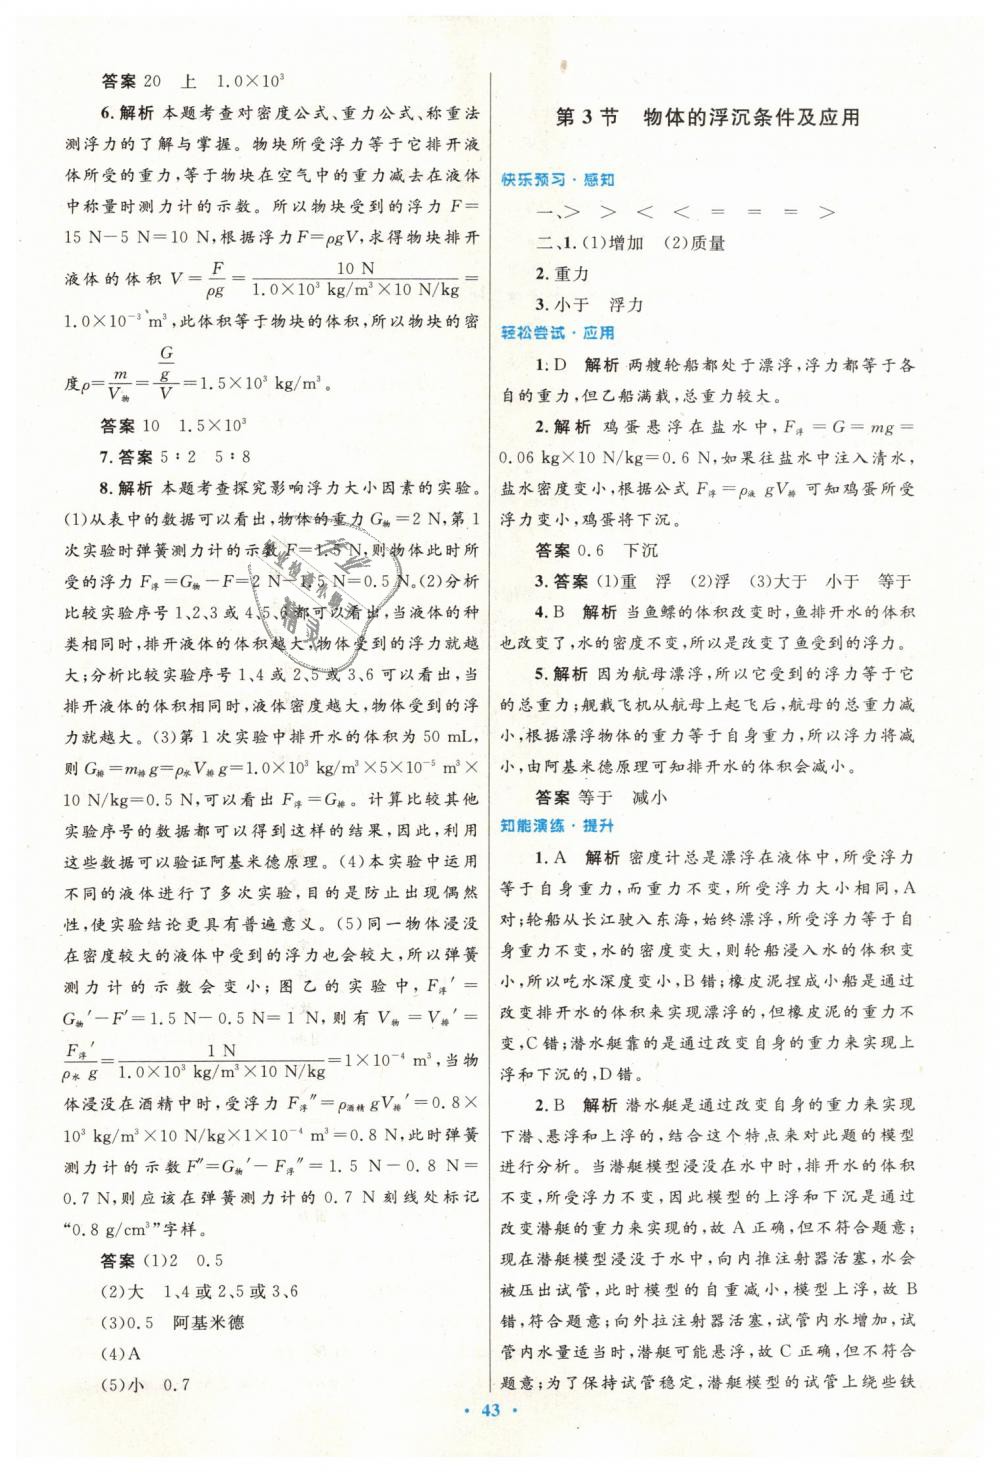 答案 20　上　1.0×10³
6.解析 本题考查对密度公式、重力公式、称重法
测浮力的了解与掌握。物块所受浮力等于它排开液
体所受的重力,等于物块在空气中的重力减去在液体
中称量时测力计的示数。所以物块受到的浮力 F=
15 N-5 N=10 N,根据浮力F=ρgV,求得物块排开
液体的体积 V=F/ρg=10 N/(1.0×10³ kg/m³×10 N/kg)=
1.0×10⁻³ m³,此体积等于物块的体积,所以物块的密
度ρ=m/V物=(G/g)/V=1.5×10³ kg/m³。
答案 10　1.5×10³
7.答案 5∶2　5∶8
8.解析 本题考查探究影响浮力大小因素的实验。
(1)从表中的数据可以看出,物体的重力 G物=2 N,第 1
次实验时弹簧测力计的示数 F=1.5 N,则物体此时所
受的浮力 F浮=G物-F=2 N-1.5 N=0.5 N。(2)分析
比较实验序号 1、2、3 或 4、5、6 都可以看出,当液体的种
类相同时,排开液体的体积越大,物体受到的浮力就越
大;分析比较实验序号 1、4 或 2、5 或 3、6 可以看出,当
排开液体的体积相同时,液体密度越大,物体受到的浮
力就越大。(3)第 1 次实验中排开水的体积为 50 mL,
则 G排=m排g=ρ水V排g=1.0×10³ kg/m³×5×10⁻⁵ m³×
10 N/kg=0.5 N,可以看出 F浮=G排。计算比较其他
实验序号的数据都可以得到这样的结果,因此,利用
这些数据可以验证阿基米德原理。(4)本实验中运用
不同的液体进行了多次实验,目的是防止出现偶然
性,使实验结论更具有普遍意义。(5)同一物体浸没
在密度较大的液体中受到的浮力也会较大,所以弹簧
测力计的示数会变小;图乙的实验中,F浮′=
G物′-F′=1.5 N-0.5 N=1 N,则有 V物=V排′=
F浮′/ρ水g=1 N/(1.0×10³ kg/m³×10 N/kg)=1×10⁻⁴ m³,当物
体浸没在酒精中时,受浮力 F浮″=ρ酒精gV排′=0.8×
10³ kg/m³×10 N/kg×1×10⁻⁴ m³=0.8 N,此时弹簧
测力计的示数F″=G物′-F浮″=1.5 N-0.8 N=
0.7 N,则应该在弹簧测力计的 0.7 N 刻线处标记
“0.8 g/cm³”字样。
答案 (1)2　0.5
(2)大　1、4 或 2、5 或 3、6
(3)0.5　阿基米德
(4)A
(5)小　0.7
第 3 节　物体的浮沉条件及应用
快乐预习·感知
一、>　>　<　<　=　=　=　>
二、1.(1)增加　(2)质量
2.重力
3.小于　浮力
轻松尝试·应用
1.D　解析 两艘轮船都处于漂浮,浮力都等于各
自的重力,但乙船满载,总重力较大。
2.解析 鸡蛋悬浮在盐水中,F浮=G=mg=
0.06 kg×10 N/kg=0.6 N,如果往盐水中注入清水,
盐水密度变小,根据公式 F浮=ρ液gV排 可知鸡蛋所受
浮力变小,鸡蛋将下沉。
答案 0.6　下沉
3.答案 (1)重　浮　(2)浮　(3)大于　小于　等于
4.B　解析 当鱼鳔的体积改变时,鱼排开水的体积
也改变了,水的密度不变,所以是改变了鱼受到的浮力。
5.解析 因为航母漂浮,所以它受到的浮力等于它
的总重力;舰载飞机从航母上起飞后,航母的总重力减
小,根据漂浮物体的重力等于自身重力,所以浮力将减
小,由阿基米德原理可知排开水的体积会减小。
答案 等于　减小
知能演练·提升
1.A　解析 密度计总是漂浮在液体中,所受浮力
等于自身重力,而重力不变,所受浮力大小相同,A
对;轮船从长江驶入东海,始终漂浮,所受浮力等于自
身重力不变,水的密度变大,则轮船浸入水的体积变
小,所以吃水深度变小,B错;橡皮泥捏成小船是通过
改变排开水的体积来实现漂浮的,但橡皮泥的重力不
变,C错;潜水艇靠的是通过改变自身的重力来实现上
浮和下沉的,D错。
2.B　解析 潜水艇是通过改变自身的重力来实现
下潜、悬浮和上浮的,结合这个特点来对此题的模型
进行分析。当潜艇模型浸没在水中时,排开水的体积
不变,所受浮力不变,因此模型的上浮和下沉是通过
改变潜艇的重力来实现的,故 A 正确,但不符合题意;
现在潜艇模型浸没于水中,向内推注射器活塞,水会
被压出试管,此时模型的自重减小,模型上浮,故 B
错,符合题意;向外拉注射器活塞,试管内水增加,试
管内水量适当时,潜艇可能悬浮,故 C 正确,但不符合
题意;为了保持试管稳定,潜艇模型的试管上绕些铁
· 43 ·